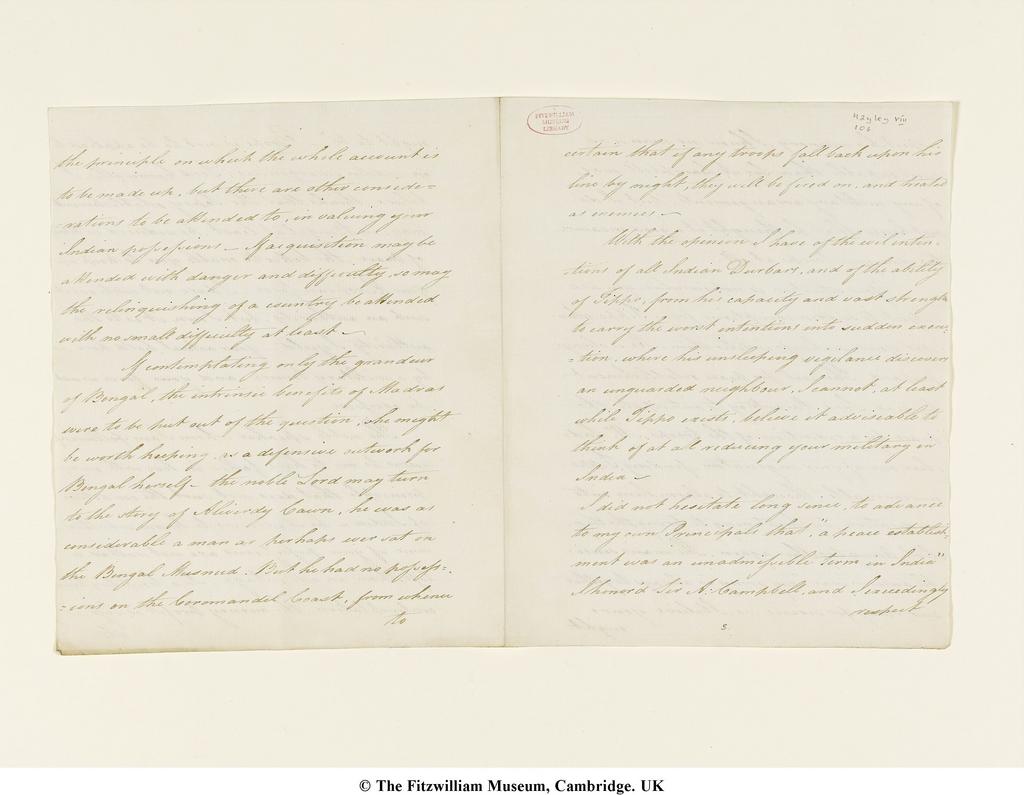 the principle on which the whole account is
to be made up, but there are other conside=
=rations to be attended to, in valuing your
Indian possessions — If acquisition may be
attended with danger and difficulty, so may
the relinquishing of a country be attended
with no small difficulty at least —
If contemplating only the grandeur
of Bengal, the intrinsic benefits of Madras
were to be put out of the question, She might
be worth keeping as a defensive outwork for
Bengal herself — the noble Lord may turn
to the story of Aliverdy Cawn, he was as
considerable a man as perhaps ever sat on
the Bengal Musnud. But he had no possess=
=ions on the Coromandel Coast, from whence
to
FITZWILLIAM
MUSEUM
LIBRARY
Hayley VIII
106
certain that if any troops fall back upon his
line by night, they will be fired on, and treated
as enemies —
With the opinion I have of the evil inten=
tions of all Indian Durbars, and of the ability
of Tippo, from his capacity and vast strength
to carry the worst intentions into sudden execu=
=tion, where his unsleeping vigilance discovers
an unguarded neighbour, I cannot, at least
while Tippo exists, believe it adviseable to
think of at all reducing your military in
India —
I did not hesitate long since, to advance
to my own Principals that, "a peace establish=
ment was an unadmissible term in India"
I honor'd Sir A: Campbell, and I exceedingly
respect
5
© The Fitzwilliam Museum, Cambridge. UK